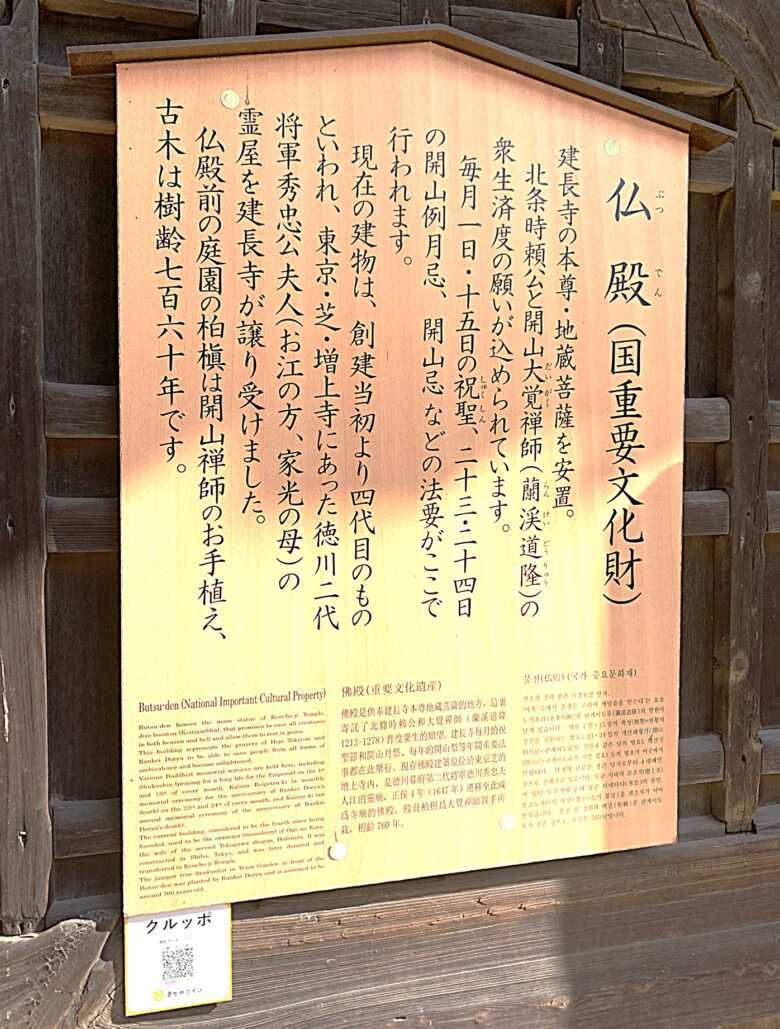 仏殿(国重要文化財)
ぶつ でん
建長寺の本尊・地蔵菩薩を安置。
北条時頼公と開山大覚禅師(蘭渓道隆)の
だいがく らんけいどうりゅう
衆生済度の願いが込められています。
毎月一日・十五日の祝聖、二十三・二十四日
しゅくしん
の開山例月忌、開山忌などの法要がここで
行われます。
現在の建物は、創建当初より四代目のもの
といわれ、東京・芝・増上寺にあった徳川二代
将軍秀忠公夫人(お江の方、家光の母)の
霊屋を建長寺が譲り受けました。
仏殿前の庭園の柏槇は開山禅師のお手植え、
古木は樹齢七百六十年です。
Butsu-den (National Important Cultural Property)
Butsu-den houses the main statue of Kencho-ji Temple,
Jizo-bosatsu (Ksitigarbha), that promises to save all creatures
in both heaven and hell and allow them to rest in peace.
This building represents the prayers of Hojo Tokiyori and
Rankei Doryu to be able to save people from all forms of
ambivalence and become enlightened.
Various Buddhist memorial services are held here, including
Shukushin (praying for a long life for the Emperor) on the 1st
and 15th of every month, Kaisan Reigetsuki (a monthly
memorial ceremony for the anniversary of Rankei Doryu's
death) on the 23rd and 24th of every month, and Kaisan-ki (an
annual memorial ceremony of the anniversary of Rankei
Doryu's death).
The current building, considered to be the fourth since being
founded, used to be the otamaya (mausoleum) of Ogo no Kata,
the wife of the second Tokugawa shogun, Hidetada. It was
constructed in Shiba, Tokyo, and was later donated and
transferred to Kencho-ji Temple.
The juniper tree
in front of the
Butsu-den was planted by Rankei Doryu and is assumed to be
around 760 years old.
佛殿(重要文化遺産)
佛殿是供奉建長寺本尊地藏菩薩的地方,這裏
寄託了北條時賴公和大覺禪師(蘭溪道隆
1213-1278)普度衆生的願望。建長寺每月的祝
聖節和開山月祭、每年的開山祭等年間重要法
事都在此舉行。現存佛殿建築原位於東京芝的
增上寺內,是德川幕府第二代將軍德川秀忠夫
人江的靈廟,正保4年(1647年)遷移至此成
爲寺廟的佛殿。殿前柏樹爲大覺禪師親手所
栽,樹齡760年。
불전(仏殿)(국가 중요문화재)
クルッポ
まちのコイン